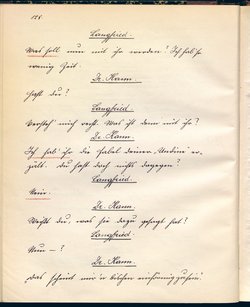 128
Langfried.
Was soll nun mit ihr werden? Ich hab' so
wenig Zeit.
Dr. Hann.
Hast du?
Langfried.
Versteh' mich recht. Was ist denn mit ihr?
Dr. Hann.
Ich hab' ihr die Fabel deiner „Undine" er-
zählt. Du hast doch nichts dagegen?
Langfried.
Nein.
Dr. Hann.
Weißt du, was sie dazu gesagt hat?
Langfried.
Nun – ?
Dr. Hann.
Das scheint mir ein bischen